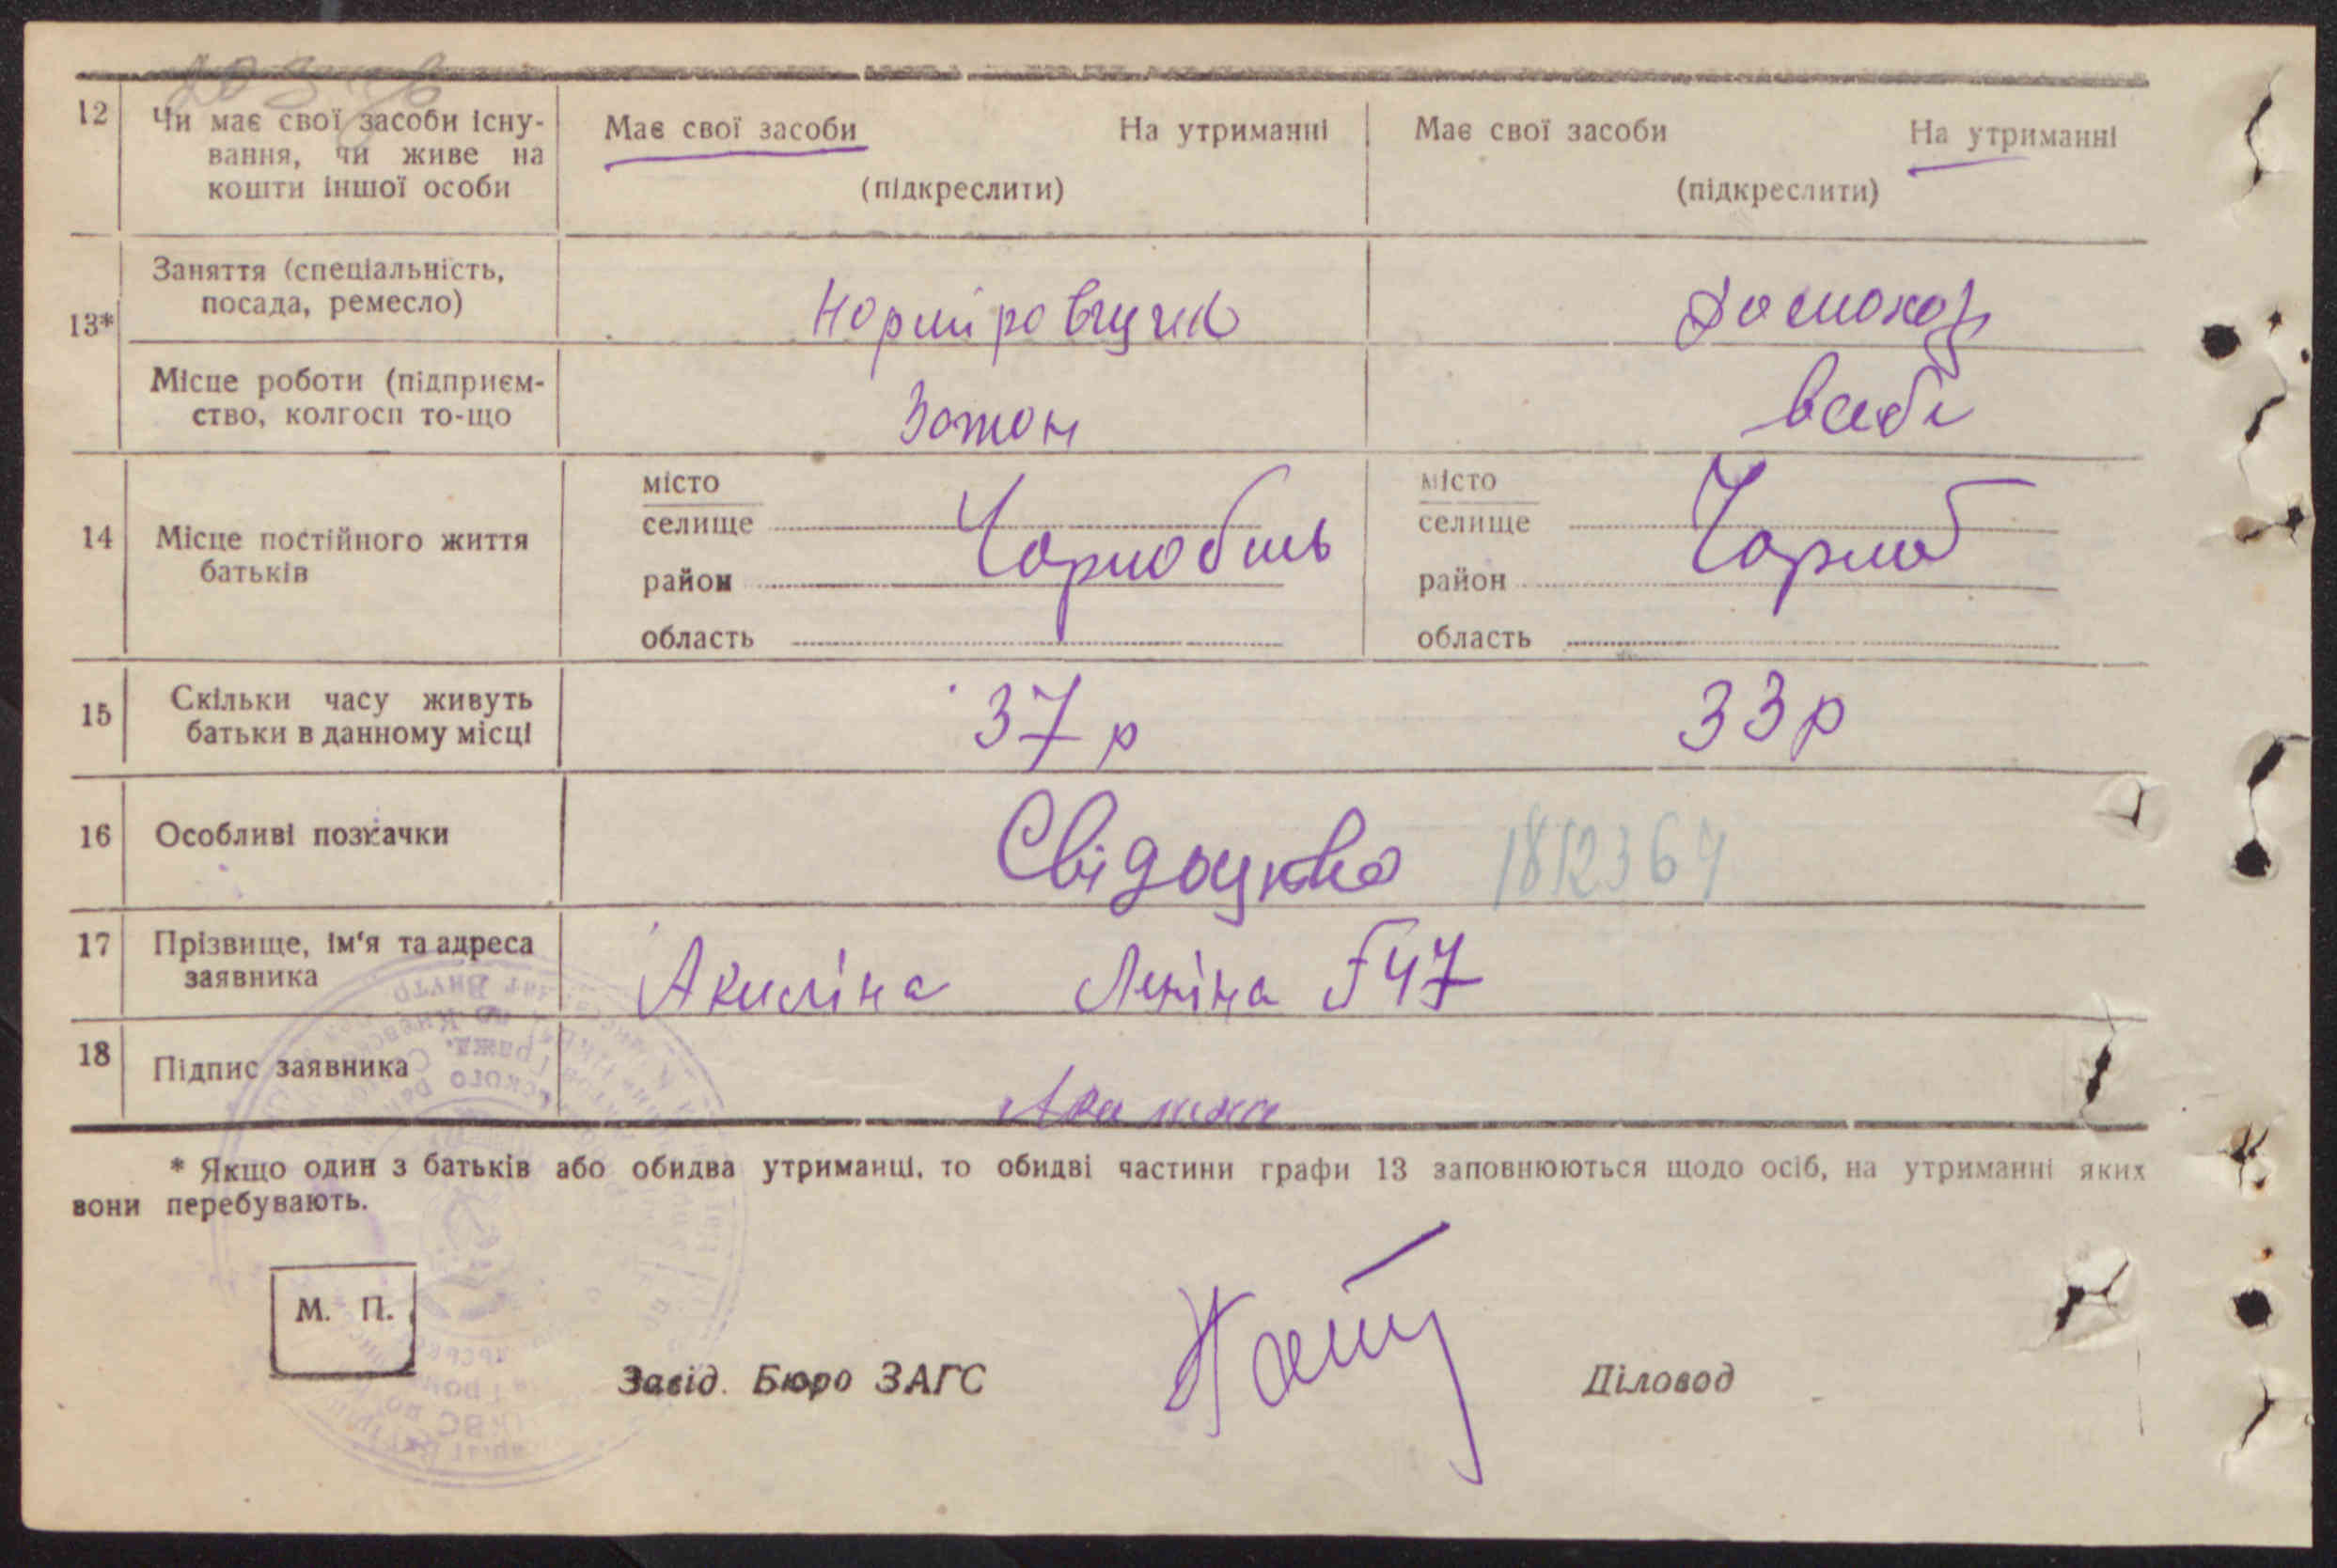 12 Чи має свої засоби існу-
вання, чи живе на
кошти іншої особи
Має свої засоби На утриманні
(підкреслити)
Має свої засоби На утриманні
(підкреслити)
13*
Заняття (спеціальність,
посада, ремесло)
Норміровщик
Домохоз
Місце роботи (підприєм-
ство, колгосп то-що
Затон
14 Місце постійного життя
батьків
місто
селище
район
область
Чорнобиль
місто
селище
район
область
Чорноб
15 Скільки часу живуть
батьки в данному місці
37 р
33 р
16 Особливі позначки
Свідоцтво 1812364
17 Прізвище, ім'я та адреса
заявника
Акиліна Леніна 547
18 Підпис заявника
* Якщо один з батьків або обидва утриманці, то обидві частини графи 13 заповнюються щодо осіб, на утриманні яких
вони перебувають.
М. П.
Завід. Бюро ЗАГС
Діловод